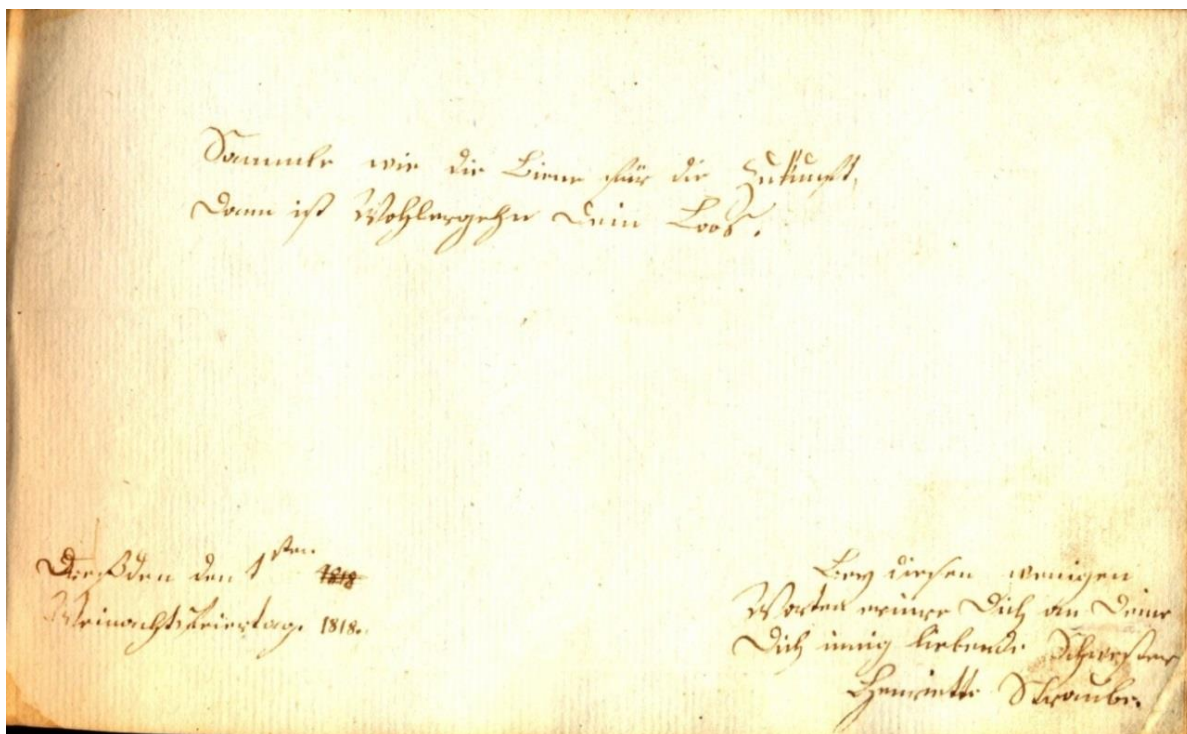 Sammle wie die Biene für die Zukunft,
Dann ist Wohlergehn Dein Loos.
Dreßden den 1sten 1818
Weinachtsfeiertag. 1818.
Bey diesen wenigen
Worten erinre Dich an Deine
Dich innig liebende Schwester
Henriette Straube.